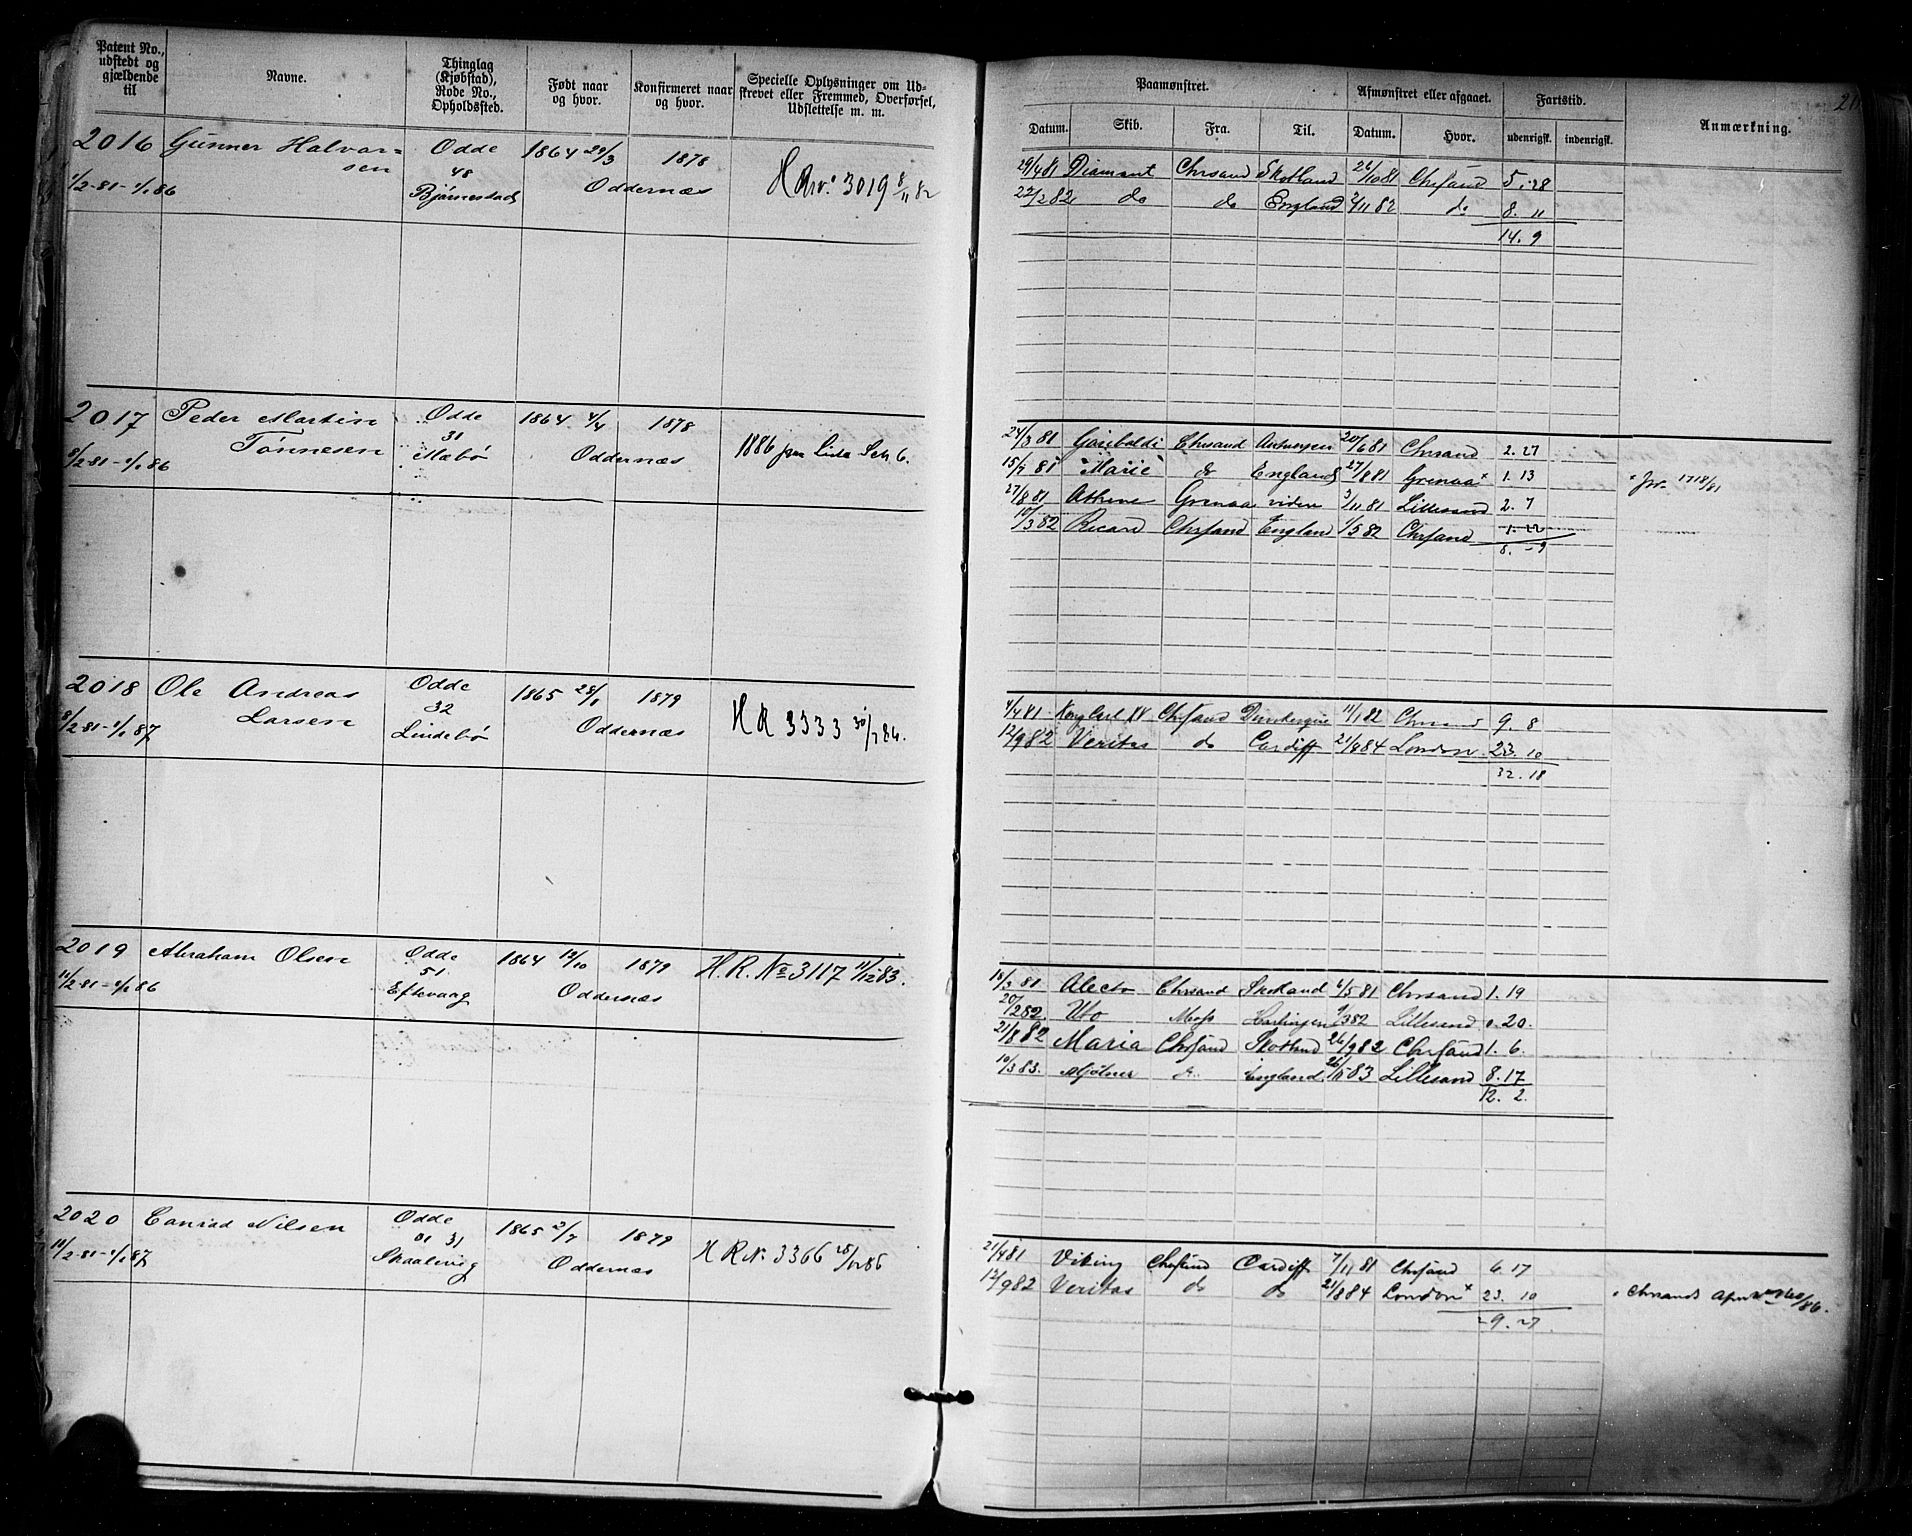 Patent No., udstedt og gjældende til
Navne.
Thinglag (Kjøbstad), Rode No., Opholdssted.
Født naar og hvor.
Konfirmeret naar og hvor.
Specielle Oplysninger om Udskrevet eller Fremmed, Overførsel, Udslettelse m. m.
Paamønstret.
Afmønstret eller afgaaet.
Fartstid.
Anmærkning.
Datum. Skib. Fra. Til. Datum. Hvor. udenrigsk. indenrigsk.
2016 Gunner Halvor= Odde 1864 29/3 1878
sen 48 Oddernæs
1/2-81-1/1 86 Bjørnestad H Rv: 3019 8/11 82
29/4 81 Diamant Chrsand Skotland 26/10 81 Chrsand 5. 28
22/2 82 do do England 2/11 82 do 8. 11
14. 9
2017 Peder Martin Odde 1864 4/4 1878
Tønnesen 31 Oddernæs
8/2-81-1/1 86 Mæbø 1886 fra
24/3 81 Garibaldi Chrsand Antwerpen 20/6 81 Chrsand 2. 27
15/7 81 "Marie" do England 27/8 81 Grenaa x 1. 13
27/8 81 Athene Grenaa viden 3/11 81 Lillesand 2. 7
10/3 82 Ricard Chrsand England 1/5 82 Chrsand 1. 22
8. 9
2018 Ole Andreas Odde 1865 28/1 1879
Larsen 32 Oddernæs
8/2-81-1/1 87 Lindebø H R 3333
4/4 81 Kong Carl XV Chrsand 11/1 82 Chrsand 9. 8
12/9 82 Veritas do Cardiff 21/8 84 London 23. 10
32. 18
2019 Abraham Olsen Odde 1864 12/10 1879 H. R. No 3117 11/12 83.
51
11/2-81-1/1 86 Eftevaag Oddernæs
18/3 81 Alecto Chrsand Skotland 6/5 81 Chrsand 1. 19
20/2 82 Uto Moss Harlingen 9/3 82 Lillesand 0. 20.
21/8 82 Maria Chrsand Skotland 26/9 82 Chrsand 1. 6.
10/3 83. Mjølner do England. 26/11 83 Lillesand 8. 17
12. 2.
2020 Conrad Nilsen Odde 1865 2/7 1879
31
11/2-81-1/1 87 Skaalevig Oddernæs H R No 3366
21/4 81 Viking Chrsand Cardiff 7/11 81 Chrsand 6. 17
12/9 82 Veritas do do 21/8 84 London x 23. 10
29. 27
x Chrsands